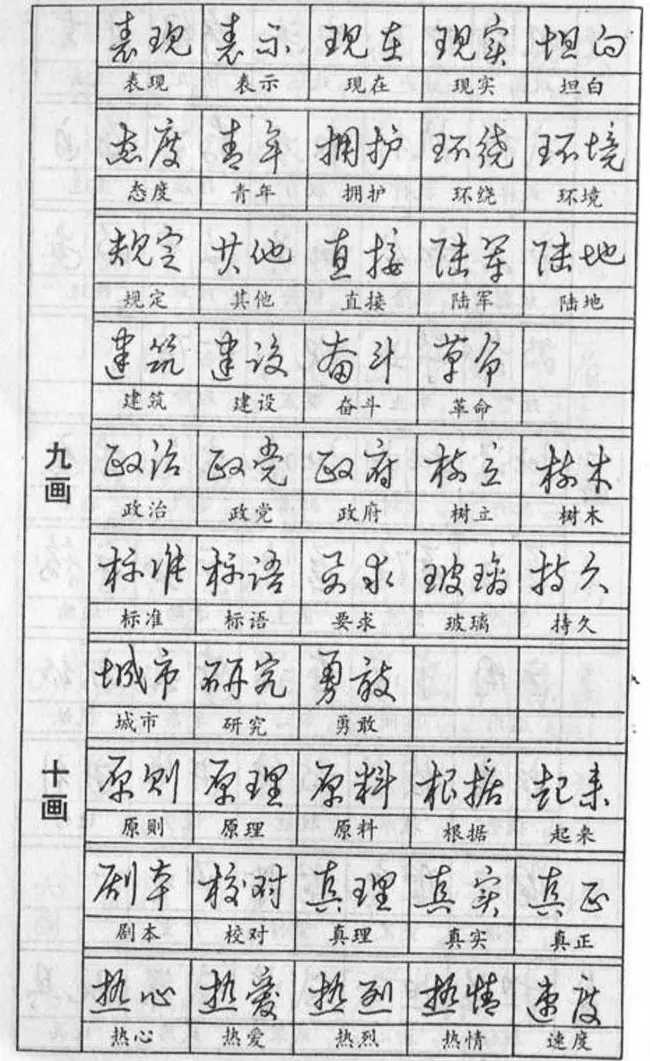 表现 表示 现在 现实 坦白
表现 表示 现在 现实 坦白
态度 青年 拥护 环绕 环境
态度 青年 拥护 环绕 环境
规定 其他 直接 陆军 陆地
规定 其他 直接 陆军 陆地
建筑 建设 奋斗 革命
建筑 建设 奋斗 革命
九画
政治 政党 政府 树立 树木
政治 政党 政府 树立 树木
标准 标语 要求 玻璃 持久
标准 标语 要求 玻璃 持久
城市 研究 勇敢
城市 研究 勇敢
十画
原则 原理 原料 根据 起来
原则 原理 原料 根据 起来
剧本 校对 真理 真实 真正
剧本 校对 真理 真实 真正
热心 热爱 热烈 热情 速度
热心 热爱 热烈 热情 速度